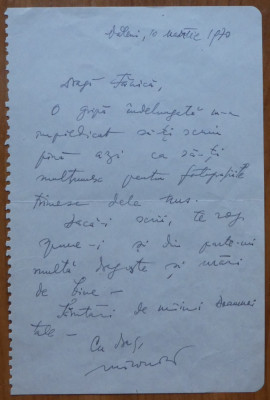 10 martie 1970
Dragă Tănică,
O gripă îndelungată m-a
împiedicat să-ți scriu
până azi ca să-ți
mulțumesc pentru fotografiile
trimese dela
Dacă-i scrii, te rog
spune-i și din partea-mi
multă dragoste și urări
de bine –
Sărutări de mâini Doamnei
tale –
Cu drag,